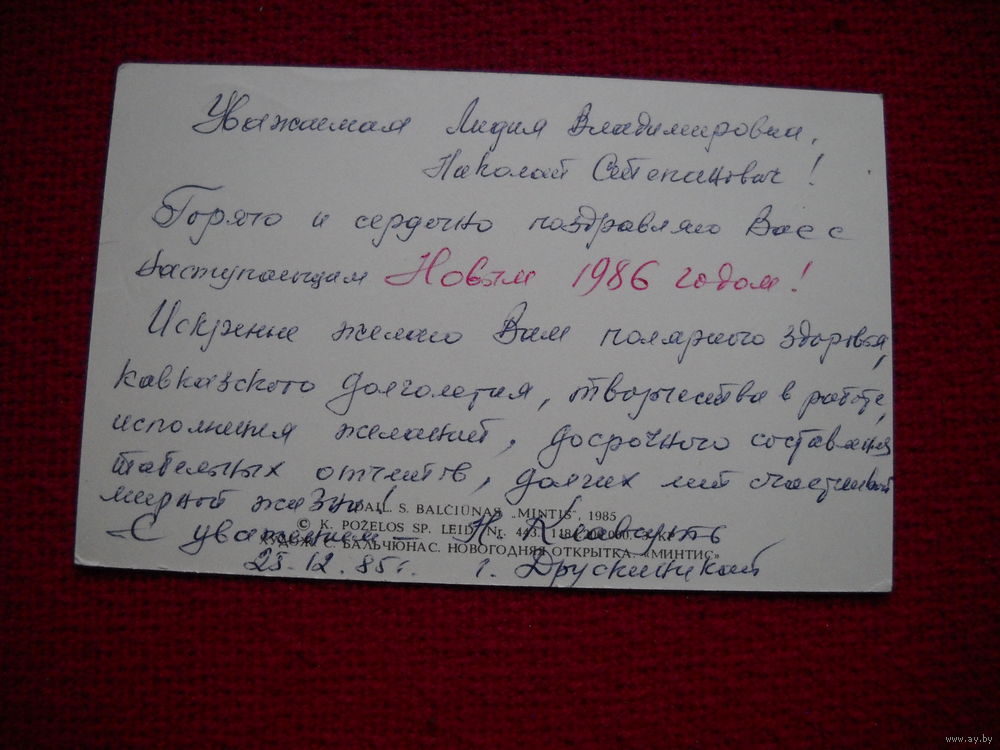 Уважаемая Лидия Владимировна,
Николай Степанович!
Горячо и сердечно поздравляю Вас с
наступающим Новым 1986 годом!
Искренне желаю Вам полярного здоровья,
кавказского долголетия, творчества в работе,
исполнения желаний, досрочного составления
табельных отчетов, долгих лет счастливой
мирной жизни!
DAIL. S. BALČIŪNAS „MINTIS", 1985
© K. POŽELOS SP. LEID. Nr.
С уважением – Н.
ХУДОЖ. С. БАЛЬЧЮНАС. НОВОГОДНЯЯ ОТКРЫТКА. «МИНТИС»
25.12.85г. г. Друскининкай
www.ay.by